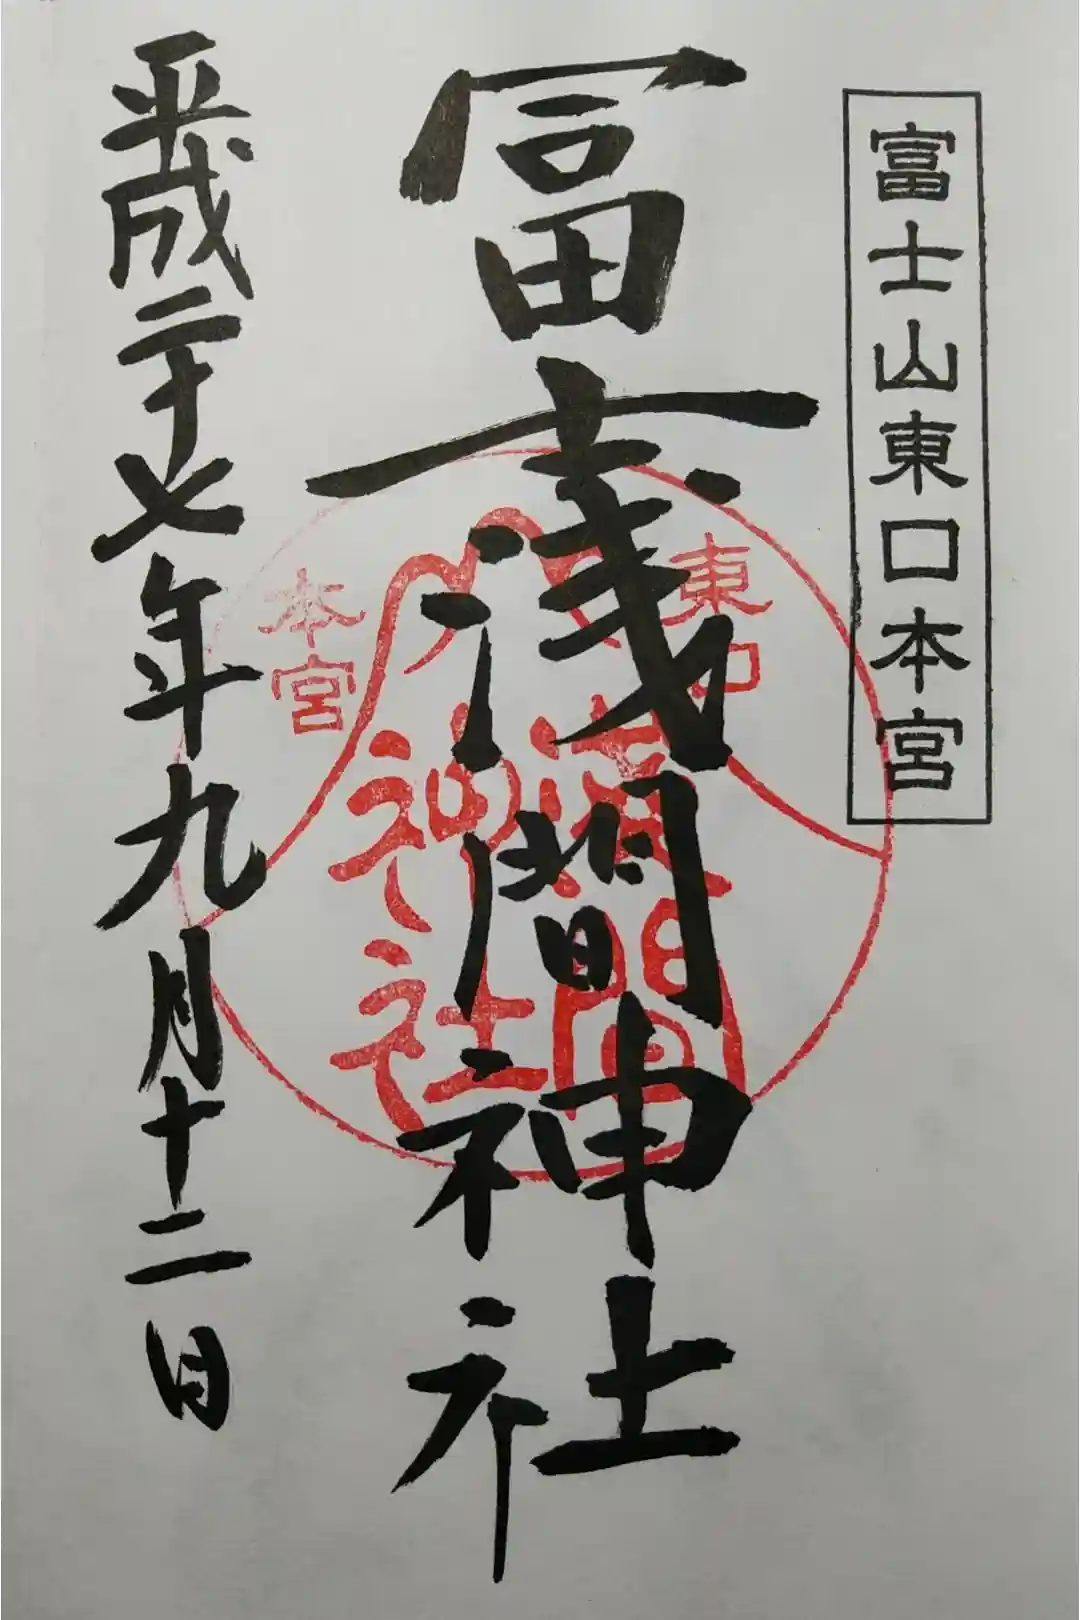 富士山東口本宮
冨士浅間神社
平成二十七年九月十二日
東口
本宮
淺間
神社